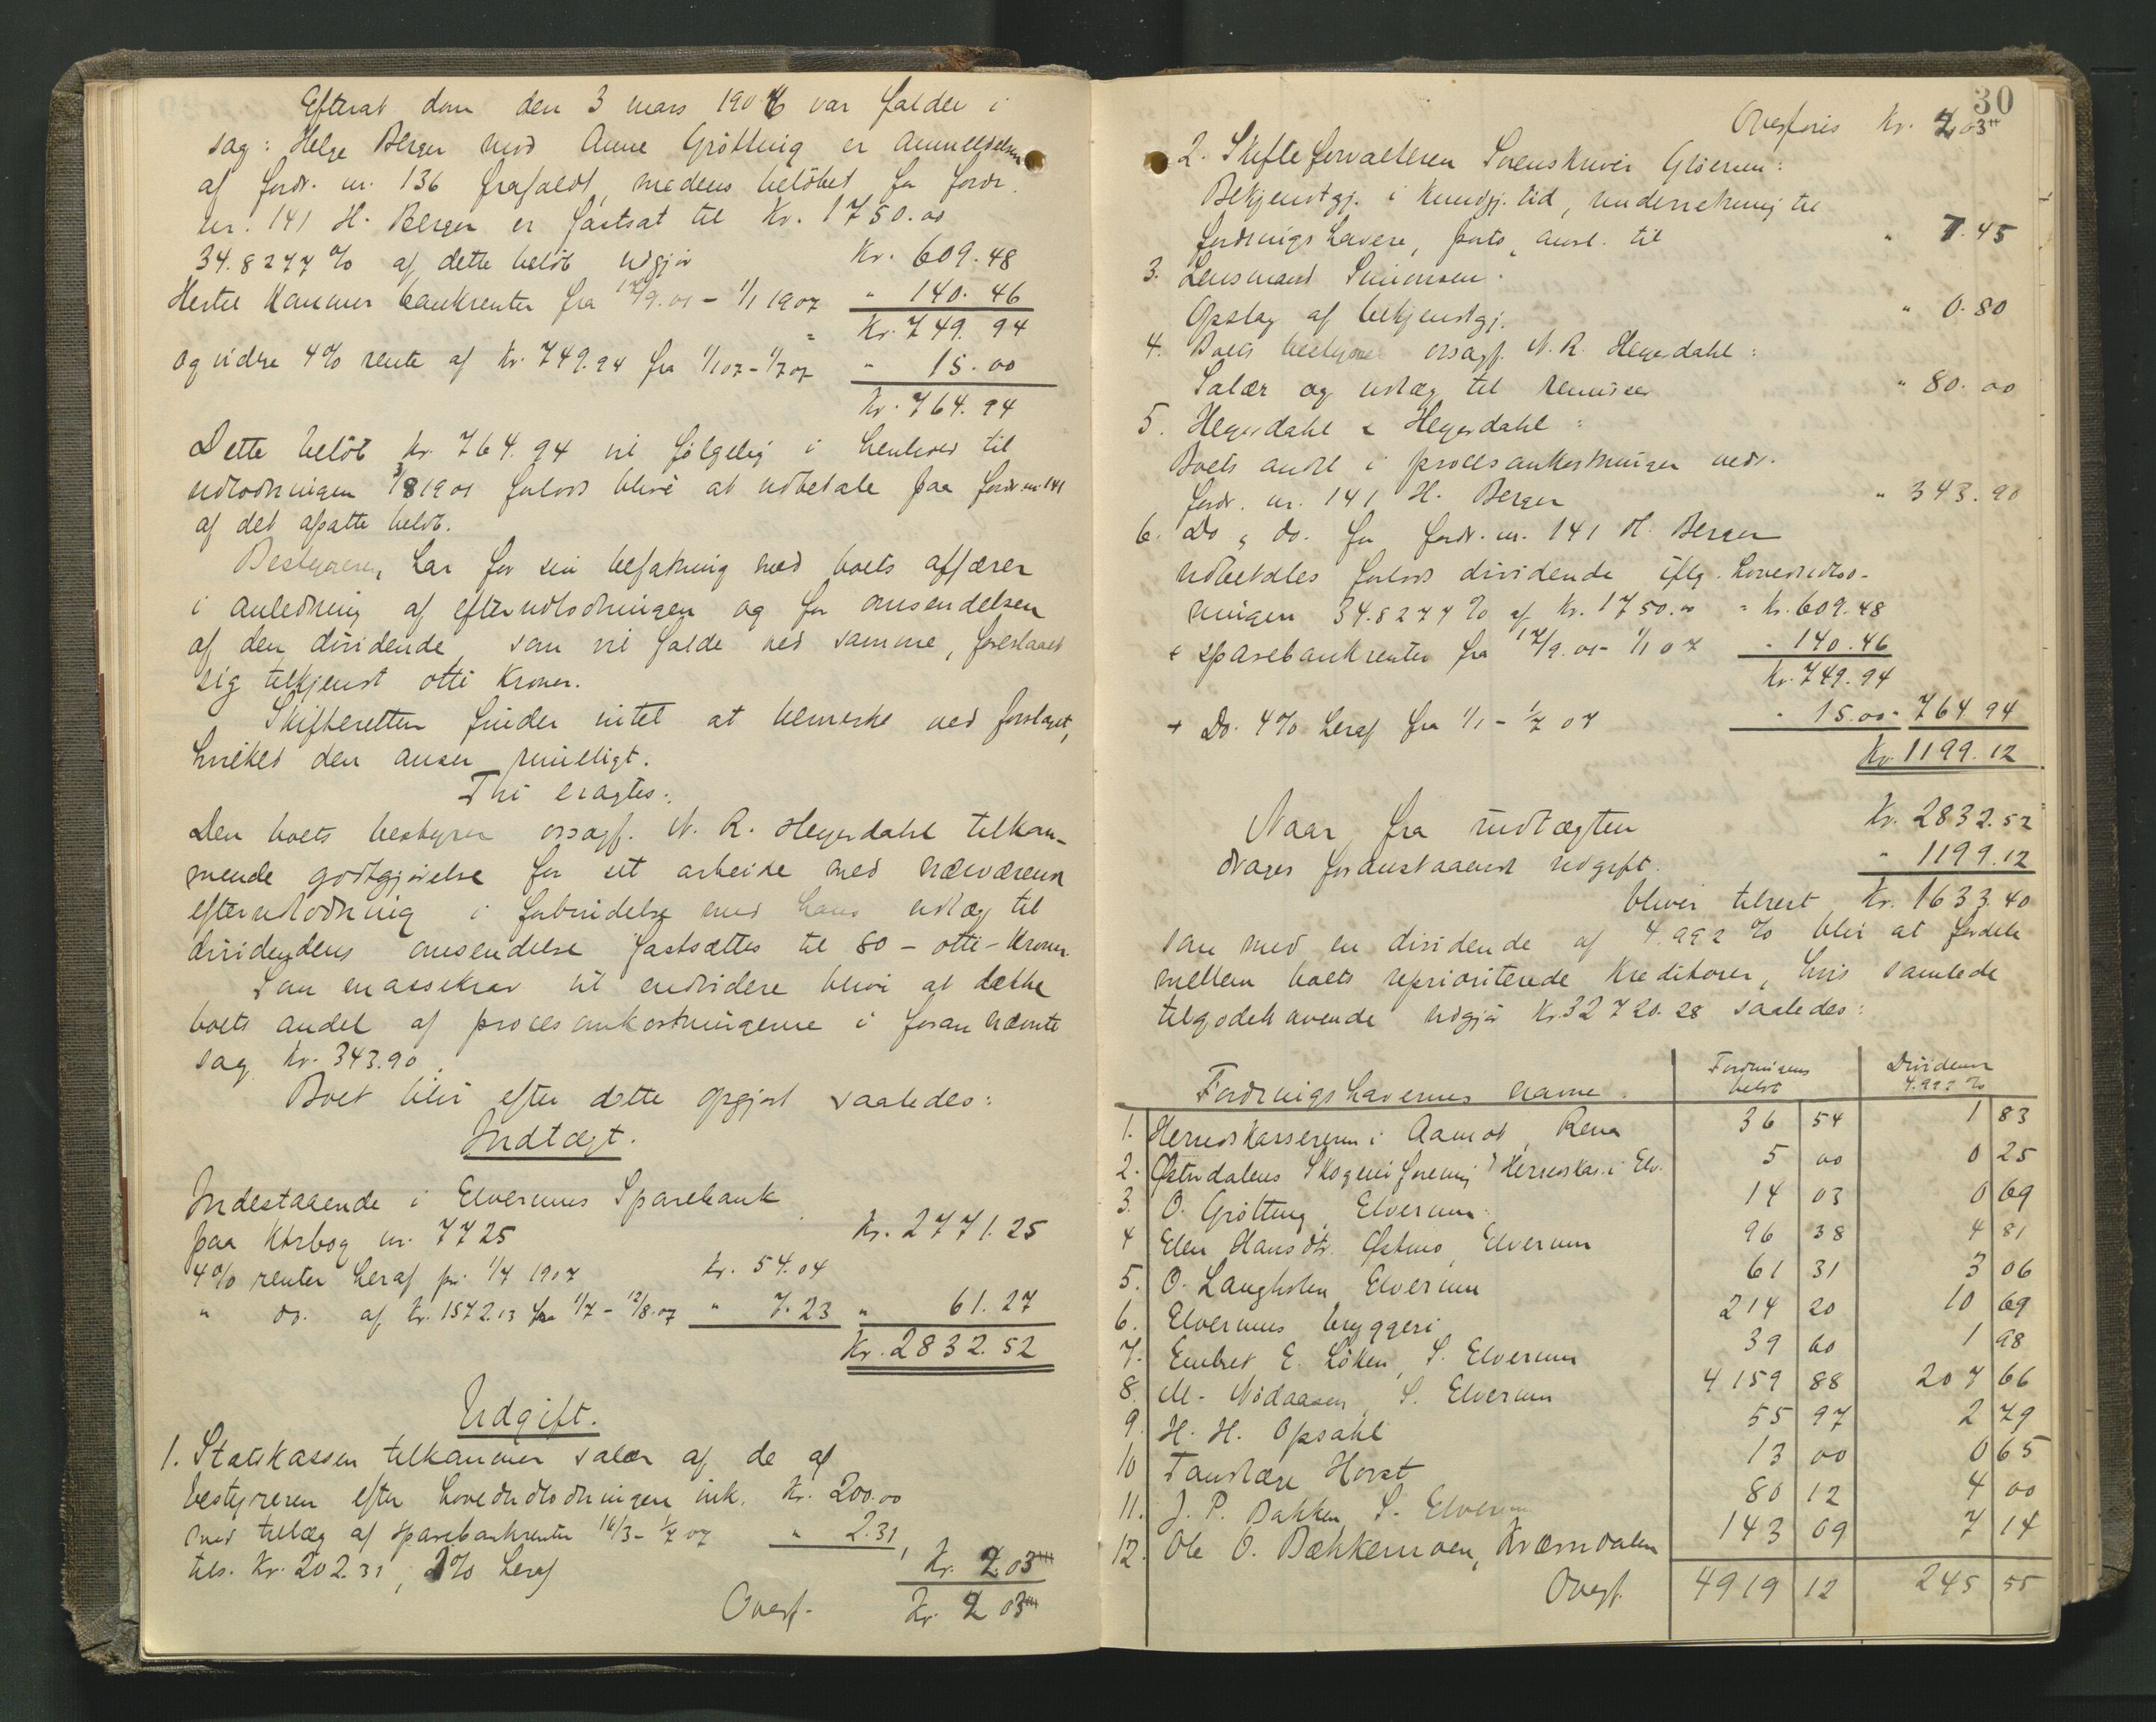 Efterat dom den 3 mars 1906 var falden i
sag: Helge Berger mod Anne Gröttving er anmeldelsen
af fordr. nr. 136 frafaldt, medens belöbet for fordr.
nr. 141 H. Berger er fastsat til Kr. 1750.00
34.8277 % af dette belöb udgjör Kr. 609.48
Hertil kommer bankrenter fra 17/9.01 - 1/1 1907 " 140.46
= Kr. 749.94
og videre 4% rente af Kr. 749.94 fra 1/1 07 - 1/7 07 " 15.00
Kr. 764.94
Dette belöb Kr. 764.94 vil fölgelig i henhold til
udlodningen 3/8 1901 forlods blive at udbetale paa fordr. nr. 141
af det afsatte belöb.
Bestyreren har for sin befatning med boets affærer
i anledning af efterudlodningen og for omsendelsen
af den dividende, som vil falde ved samme, foreslaaet
sig tilkjendt otti kroner.
Skifteretten finder intet at bemerke ved forslaget,
hvilket den anser rimeligt.
Thi eragtes:
Den boets bestyrer orsagf. N. R. Hegerdahl tilkom-
mende godtgjörelse for sit arbeide med nærværende
efterudlodning i forbindelse med hans udlæg til
dividendens omsendelse fastsættes til 80 - otti - kroner.
Som massekrav vil endvidere blive at dække
boets andel af procesomkostningerne i foran nævnte
sag Kr. 343.90.
Boet blir efter dette opgjort saaledes:
Indtægt.
Indestaaende i Elverums Sparebank
paa Ktrbog nr. 7725 Kr. 2771.25
4% renter heraf pr. 1/7 1907 Kr. 54.04
" do. af Kr. 1572.13 fra 1/7 - 12/8.07 " 7.23 " 61.27
Kr. 2832.52
Udgift.
1. Statskassen tilkommer salær af de af
bestyreren efter hovedudlodningen ink. Kr. 200.00
med tillæg af sparebankrenter 16/3 - 1/7 07 " 2.31,
tils. Kr. 202.31, 1% heraf Kr. 2.03
Overf. Kr. 2.03
30
Overföres Kr. 2.03
2. Skifteforvalteren Sorenskriver Glöersen:
Bekjendtgj. i Kundgj. tid, underretning til
fordringshavere, porto, anvl. til " 7.45
3. Lensmand Simensen:
Opslag af bekjendtgj. " 0.80
4. Boets bestyrer orsagf. N. R. Hegerdahl:
Salær og udlæg til remisser " 80.00
5. Hegerdahl & Hegerdahl:
Boets andel i procesomkostninger vedr.
fordr. nr. 141 H. Berger " 343.90
6. Do " do. for fordr. nr. 141 H. Berger
udbetales forlods dividende iflg. hovedudlod-
ningen 34.8277 % af Kr. 1750.00 = Kr. 609.48
+ sparebankrenter fra 17/9.01 - 1/1 07 " 140.46
Kr. 749.94
+ Do. 4% heraf fra 1/1 - 1/7 07 " 15.00 = 764.94
Kr. 1199.12
Naar fra indtægten Kr. 2832.52
drages foranstaaende udgift " 1199.12
bliver tilrest Kr. 1633.40
som med en dividende af 4.992 % blir at fordele
mellem boets uprioriterede kreditorer, hvis samlede
tilgodehavende udgjör Kr. 32720.28 saaledes:
Fordringshavernes navne. Fordringens belöb Dividende 4.992 %
1. Herredskassereren i Aamot, Rena 36 54 1 83
2. Österdalens Skogeierforening Herredskas. i Elv. 5 00 0 25
3. O. Grötting, Elverum 14 03 0 69
4 Elen Hansdtr. Östmo, Elverum 96 38 4 81
5. O. Langholen Elverum 61 31 3 06
6. Elverums bryggeri 214 20 10 69
7. Embret E. Löken, S. Elverum 39 60 1 98
8. M. Nödaasen, S. Elverum 4159 88 207 66
9. H. H. Opsahl 55 97 2 79
10 Tandlæge Horst 13 00 0 65
11. J. P. Bakken, S. Elverum 80 12 4 00
12. Ole O. Bækkemoen, Kværndalen 143 09 7 14
Overf. 4919 12 245 55